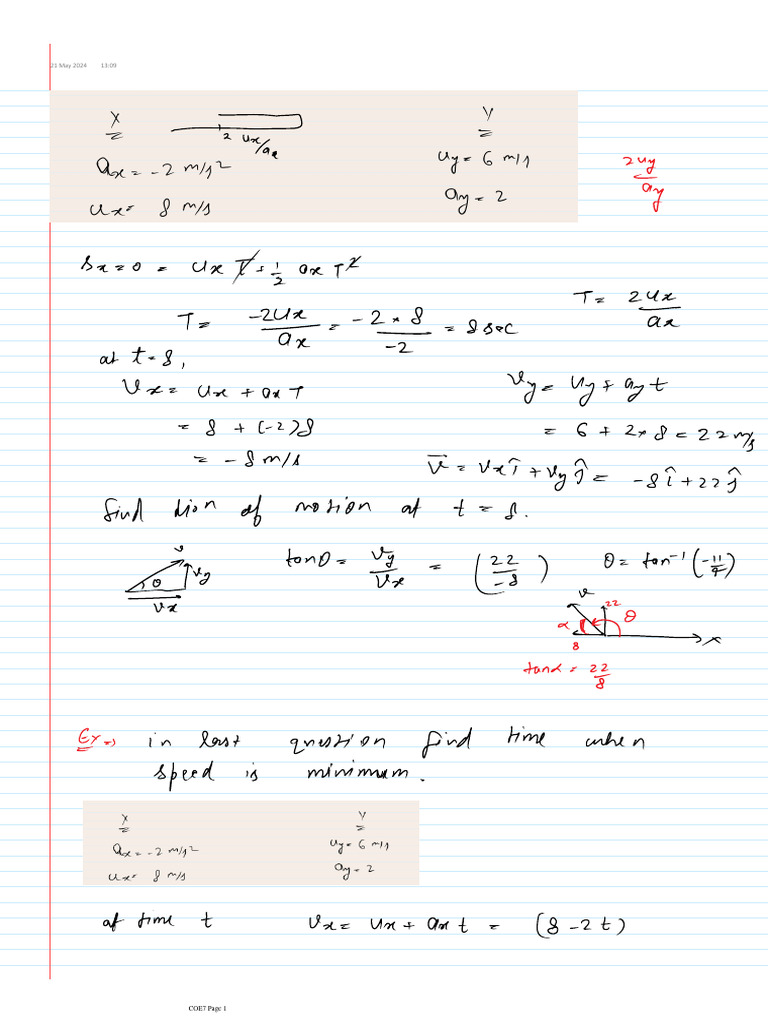 21 May 2024 11:09
X Y
2 ux/ax
ax = -2 m/s² uy = 6 m/s 2uy/ay
ux = 8 m/s ay = 2
sx = 0 = ux T + 1/2 ax T²
T = -2ux/ax = -2 × 8/-2 = 8 sec T = 2ux/ax
at t = 8,
vx = ux + ax T vy = uy + ay t
= 8 + (-2)8 = 6 + 2 × 8 = 22 m/s
= -8 m/s v̅ = vx î + vy ĵ = -8 î + 22 ĵ
find dion of motion at t = 8.
v θ vy vx tanθ = vy/vx = (22/-8) θ = tan⁻¹(-11/4)
v 22 θ α 8 x
tanα = 22/8
Ex ⇒ in last question find time when
speed is minimum.
X Y
ax = -2 m/s² uy = 6 m/s
ux = 8 m/s ay = 2
at time t vx = ux + ax t = (8 - 2t)
COE7 Page 1